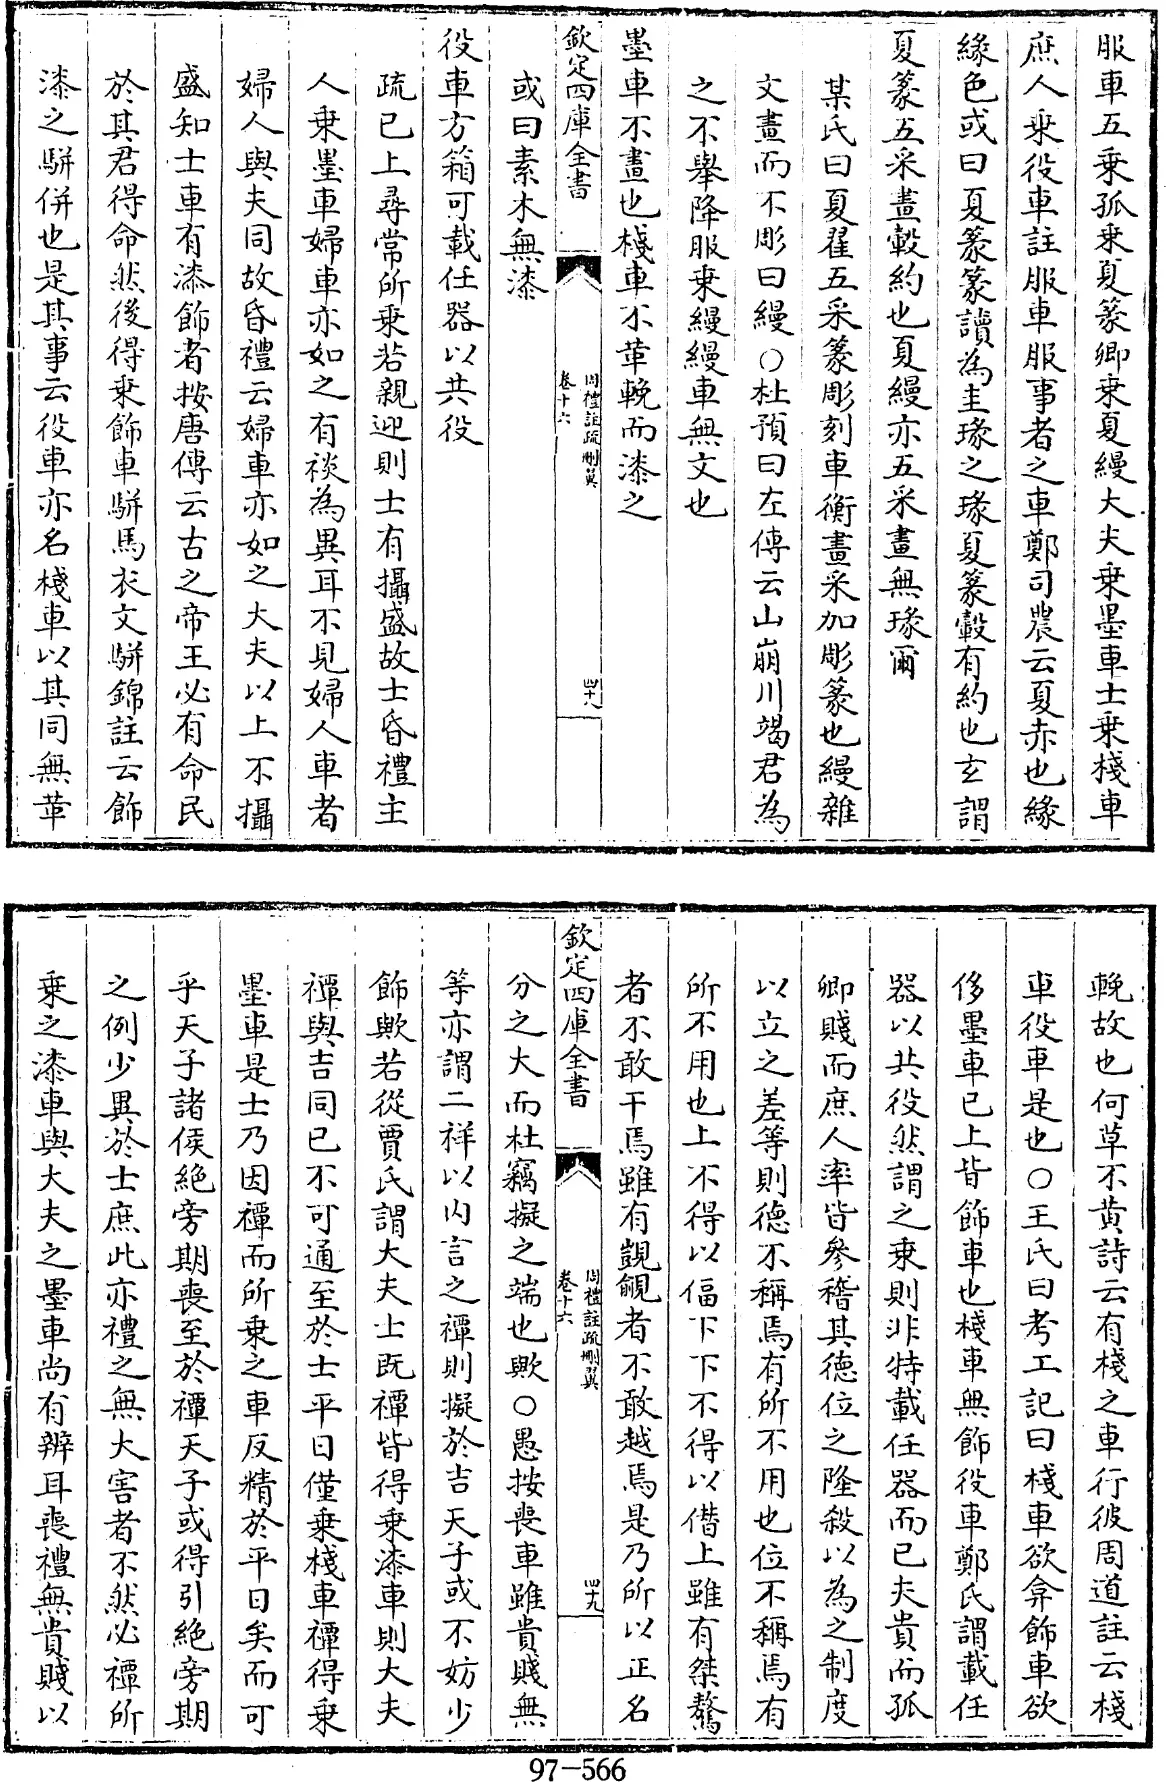 服車五乗孤乗夏篆卿乗夏縵大夫乗墨車士乗棧車
庶人乗役車註服車服事者之車鄭司農云夏赤也緣
緣色或曰夏篆篆讀為圭瑑之瑑夏篆轂有約也玄謂
夏篆五采畫轂約也夏縵亦五采畫無瑑爾
某氏曰夏翟五采篆彫刻車衡畫采加彫篆也縵雜
文畫而不彫曰縵○杜預曰左傳云山崩川竭君為
之不舉降服乗縵縵車無文也
墨車不畫也棧車不革輓而漆之
欽定四庫全書
周禮註疏刪翼
卷十六
四十九
或曰素木無漆
役車方箱可載任器以共役
疏已上尋常所乗若親迎則士有攝盛故士昏禮主
人乗墨車婦車亦如之有裧為異耳不見婦人車者
婦人與夫同故昏禮云婦車亦如之大夫以上不攝
盛知士車有漆飾者按唐傳云古之帝王必有命民
於其君得命然後得乗飾車駢馬衣文駢錦註云飾
漆之駢併也是其事云役車亦名棧車以其同無革
輓故也何草不黄詩云有棧之車行彼周道註云棧
車役車是也○王氏曰考工記曰棧車欲弇飾車欲
侈墨車已上皆飾車也棧車無飾役車鄭氏謂載任
器以共役然謂之乗則非特載任器而已夫貴而孤
卿賤而庶人率皆參稽其德位之隆殺以為之制度
以立之差等則德不稱焉有所不用也位不稱焉有
所不用也上不得以偪下下不得以僭上雖有桀驁
者不敢干焉雖有覬覦者不敢越焉是乃所以正名
欽定四庫全書
周禮註疏刪翼
卷十六
四十九
分之大而杜竊擬之端也歟○愚按喪車雖貴賤無
等亦謂二祥以内言之禫則擬於吉天子或不妨少
飾歟若從賈氏謂大夫士既禫皆得乗漆車則大夫
禫與吉同已不可通至於士平日僅乗棧車禫得乗
墨車是士乃因禫而所乗之車反精於平日矣而可
乎天子諸侯絶旁期喪至於禫天子或得引絶旁期
之例少異於士庶此亦禮之無大害者不然必禫所
乗之漆車與大夫之墨車尚有辨耳喪禮無貴賤以
97-566